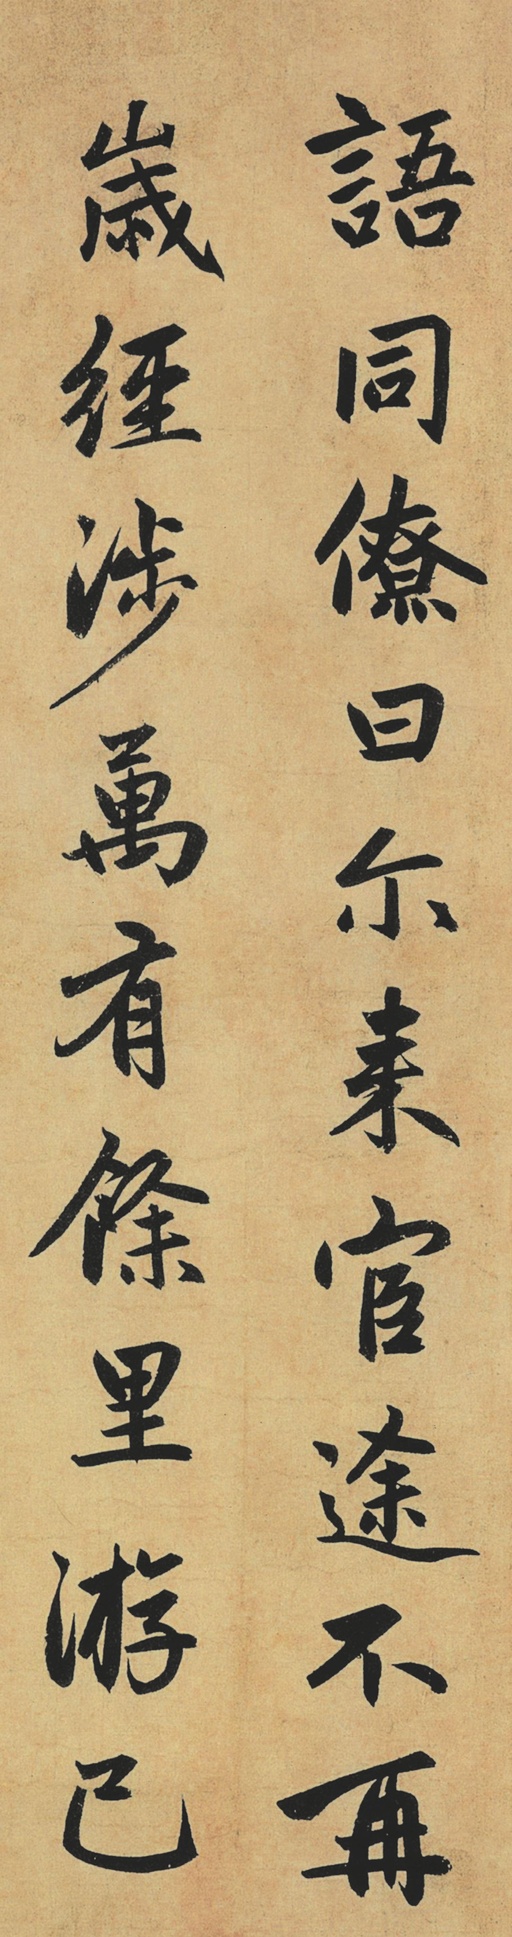 語同僚曰尓来宦途不再
歳經涉萬有餘里游已